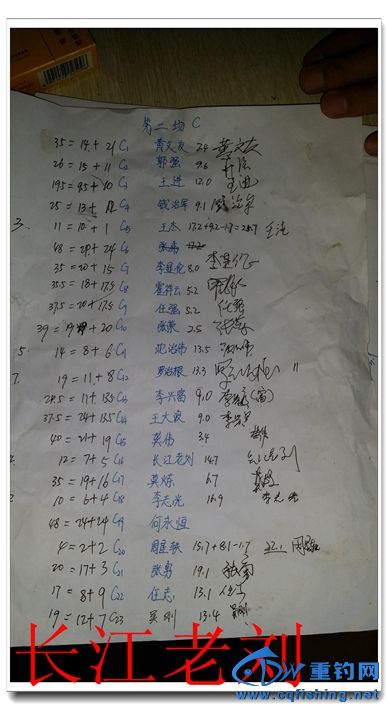 第二场 C
35 = 14 + 21 C1 黄文友 2.4 黄文友
26 = 15 + 11 C2 郭强 9.6
19.5 = 9.5 + 10 C3 王进 12.0 王进
25 = 13 + 12 C4 钱治军 9.1 钱治军
3. 11 = 10 + 1 C5 王杰 17.2+9.2-1.7=25.7
48 = 24 + 24 C6
35 = 20 + 15 C7 李显伦 8.0
35.5 = 18 + 17.5 C8 霍祥云 5.2
37.5 = 20 + 17.5 C9 任强 5.2 任强
39 = 19 + 20 C10 张蒙 2.5
5. 14 = 8 + 6 C11 沈治伟 13.5
7. 19 = 11 + 8 C12 罗治根 13.3
24.5 = 11 + 13.5 C13 李兴富 9.0
37.5 = 24 + 13.5 C14 王大波 9.0
40 = 21 + 19 C15 莫伟 3.4
12 = 7 + 5 C16 长江老刘 14.7 长江老刘
35 = 19 + 16 C17 莫炼 6.7
10 = 6 + 4 C18 李志光 16.9
48 = 24 + 24 C19 何永恒
4 = 2 + 2 C20 15.7+8.1-1.7 22.1
20 = 17 + 3 C21 张勇 19.1
17 = 8 + 9 C22 任志 13.1
19 = 12 + 7 C23 吴刚 13.4 吴刚
长江老刘
重钓网
www.cqfishing.net